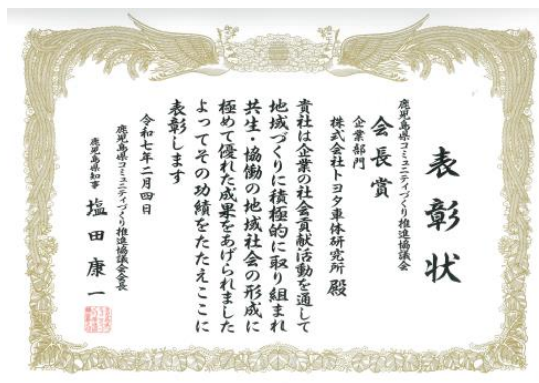 表彰状
鹿児島県コミュニティづくり推進協議会
会長賞
企業部門
株式会社トヨタ車体研究所 殿
貴社は企業の社会貢献活動を通して
地域づくりに積極的に取り組まれ
共生・協働の地域社会の形成に
極めて優れた成果をあげられました
よってその功績をたたえここに
表彰します
令和七年二月四日
鹿児島県コミュニティづくり推進協議会会長
鹿児島県知事 塩田康一